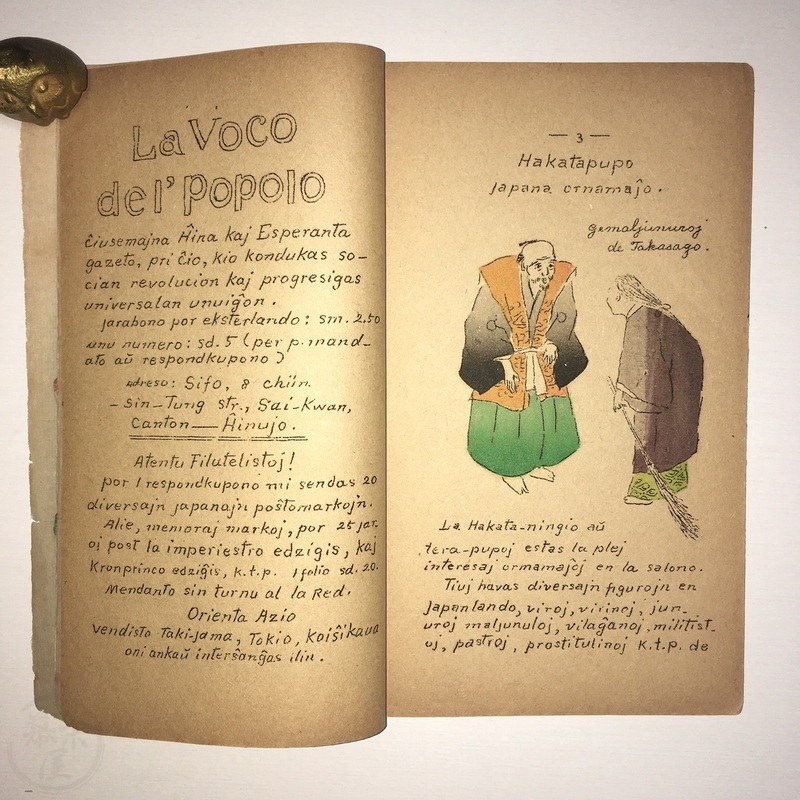 La Voco
del' Popolo
ĉiusemajna Ĥina kaj Esperanta
gazeto, pri ĉio, kio kondukas so-
cian revolucion kaj progresigas
universalan unuiĝon.
jarabono por eksterlando: sm. 2.50
unu numero: sd. 5 (per p. mand-
ato aŭ respondkupono)
adreso: Sifo, 8 chün
-Sin-Tung str., Sai-Kwan,
Canton — Ĥinujo.
Atentu Filatelistoj!
por 1 respondkupono mi sendas 20
diversajn japanajn poŝtomarkojn.
Alie, memoraj markoj, por 25 jar-
oj post la imperiestro edziĝis, kaj
Kronprinco edziĝis, k.t.p. 1 folio sd. 20.
Mendanto sin turnu al la Red.
Orienta Azio
vendisto Taki-jama, Tokio, Koiŝikaŭa
oni ankaŭ interŝanĝas ilin.
— 3 —
Hakatapupo
Japana ornamaĵo.
gemaljunuroj
de Takasago.
La Hakata-ningio aŭ
tera-pupoj estas la plej
interesaj ornamaĵoj en la salono.
Tiuj havas diversajn figurojn en
Japanlando, viroj, virinoj, jun-
uroj maljunuloj, vilaĝanoj, militist-
oj, pastroj, prostitulinoj k.t.p. de